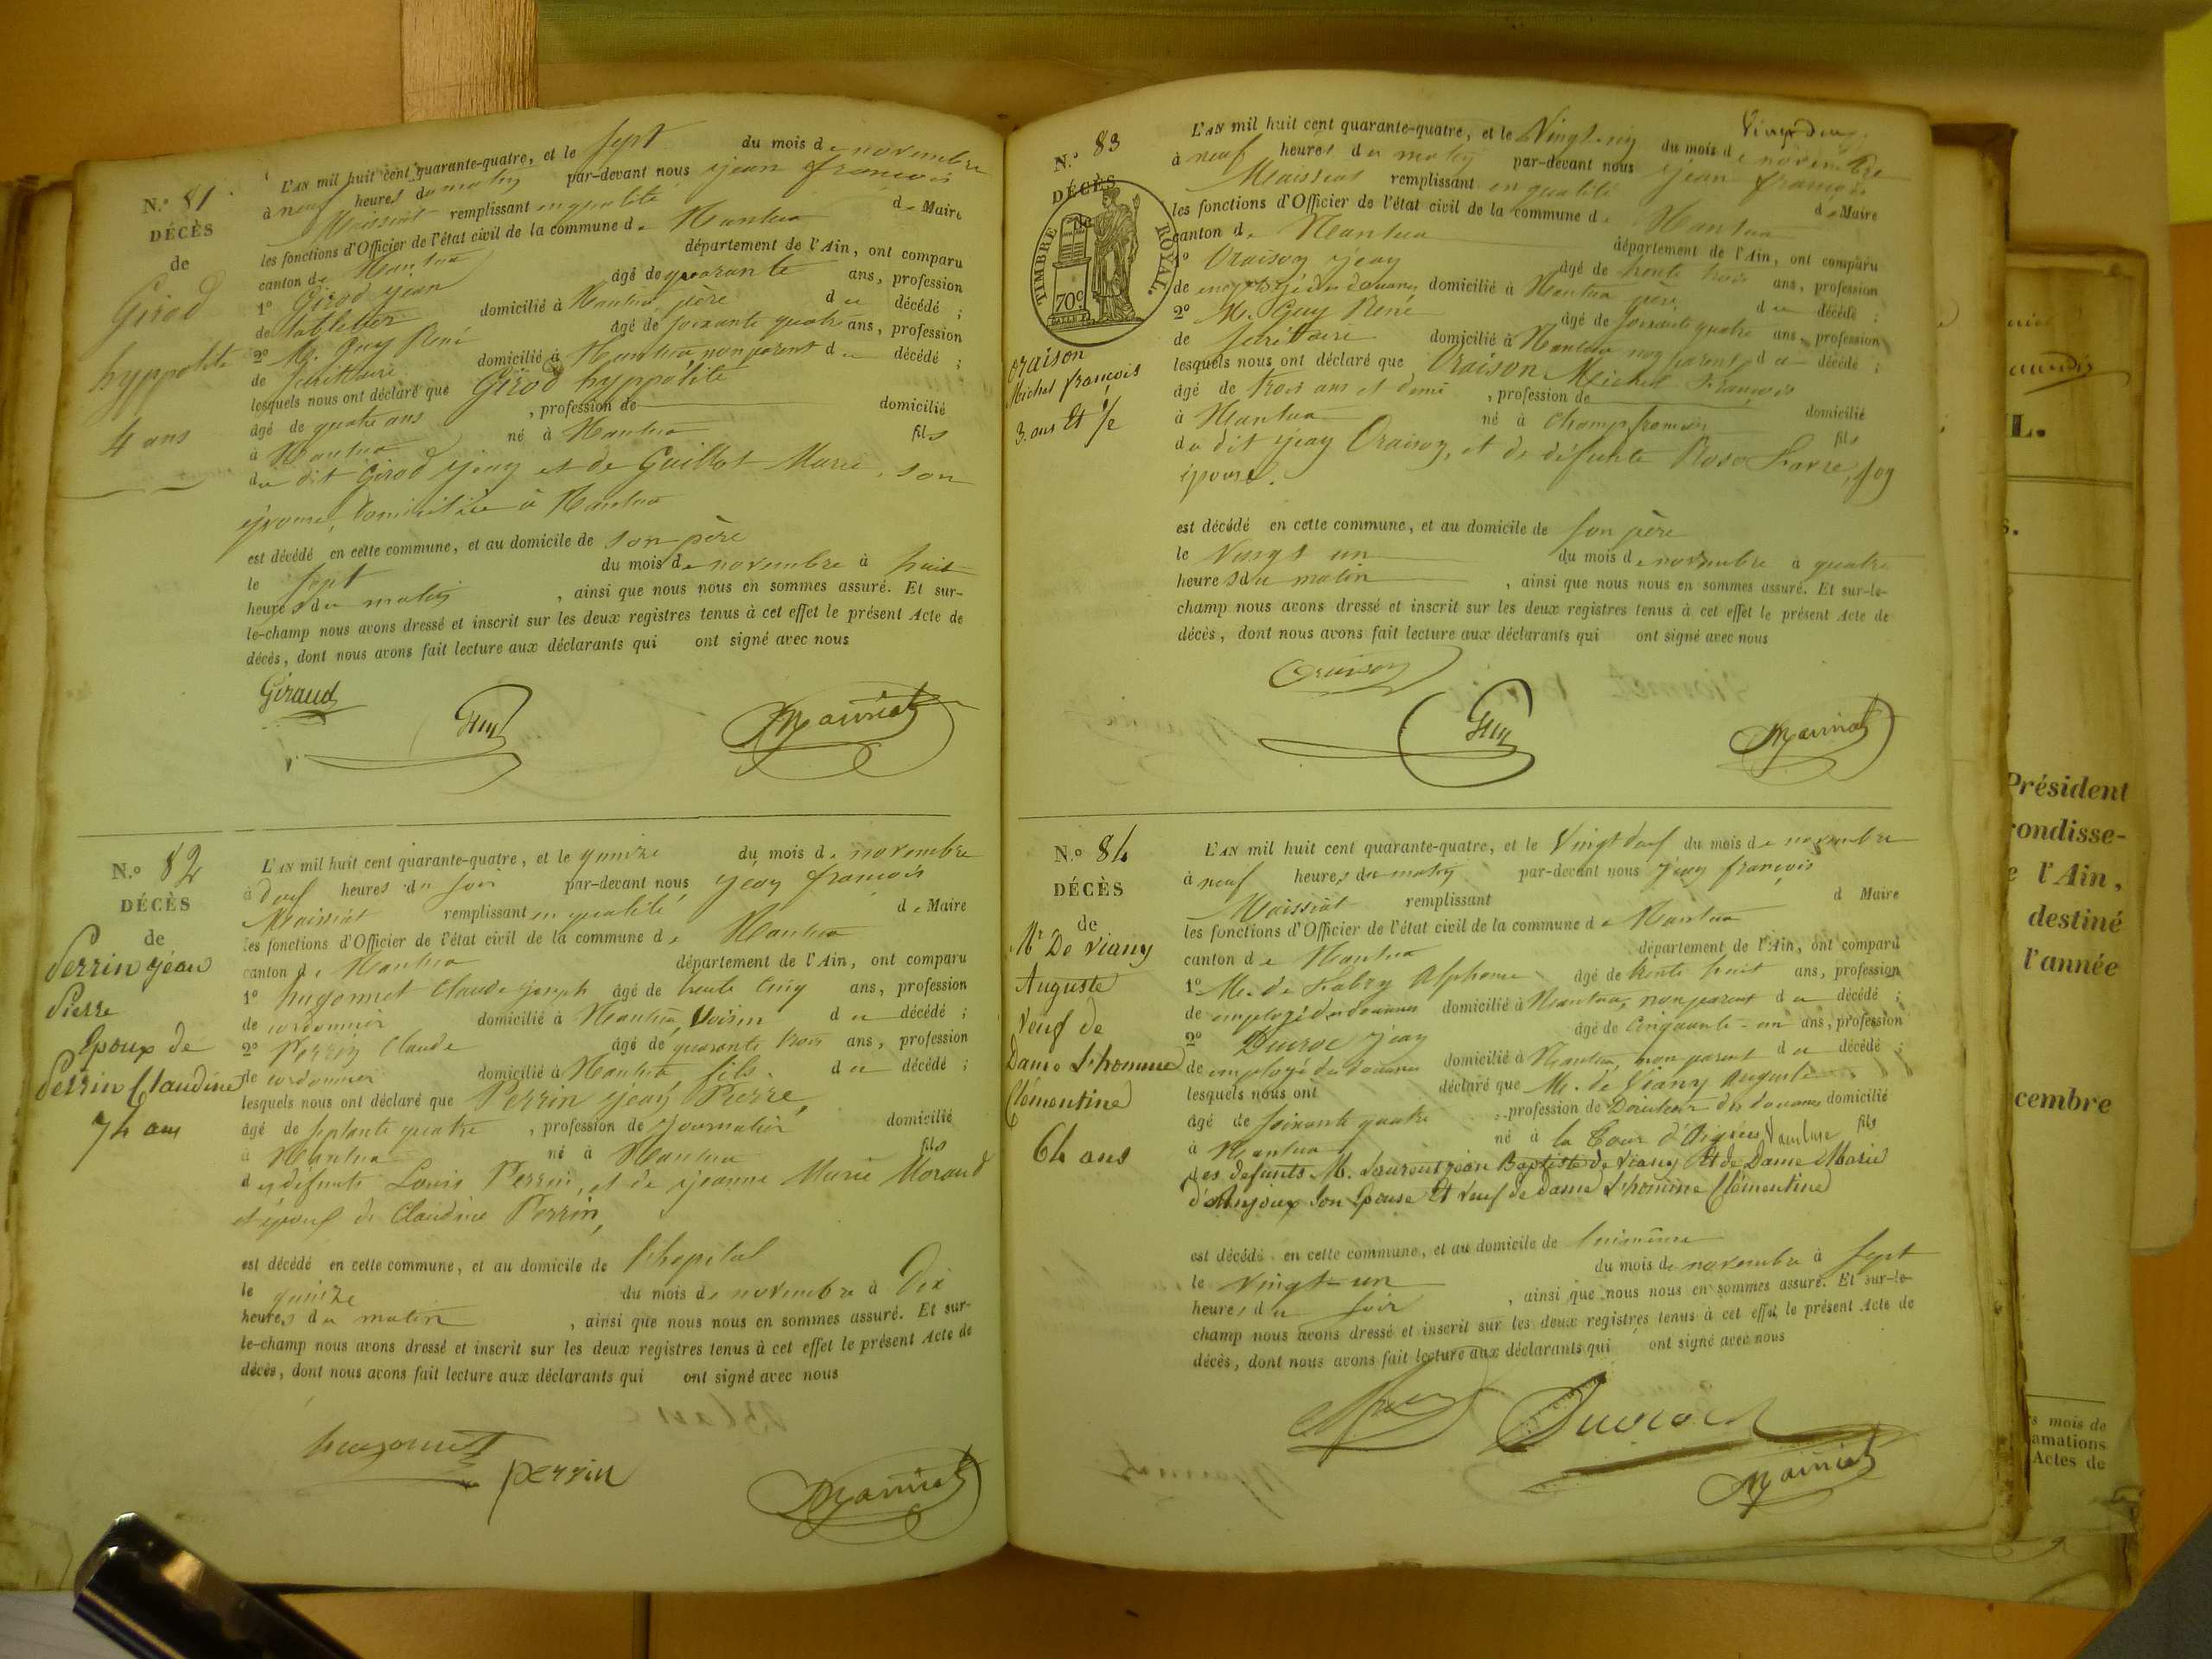 N.º 81
DÉCÈS
de
Girod
hyppolite
4 ans
L'AN mil huit cent quarante-quatre, et le sept du mois de novembre
à neuf heures du matin par-devant nous jean françois
Maissiat remplissant en qualité de Maire
les fonctions d'Officier de l'état civil de la commune de Nantua
canton de Nantua département de l'Ain, ont comparu
1º Girod jean âgé de quarante ans, profession
de tabletier domicilié à Nantua père du décédé ;
2º M. Guy René âgé de soixante quatre ans, profession
de domicilié à Nantua non parent du décédé ;
lesquels nous ont déclaré que Girod hyppolite
âgé de quatre ans , profession de domicilié
à Nantua né à Nantua fils
du dit Girod jean et de Guillot Marie, son
épouse, domiciliée à Nantua
est décédé en cette commune, et au domicile de son père
le sept du mois de novembre à huit
heures du matin , ainsi que nous nous en sommes assuré. Et sur-
le-champ nous avons dressé et inscrit sur les deux registres tenus à cet effet le présent Acte de
décès, dont nous avons fait lecture aux déclarants qui ont signé avec nous
Giraud Guy Maissiat
N.º 82
DÉCÈS
de
Perrin jean
Pierre
Epoux de
Perrin Claudine
74 ans
L'AN mil huit cent quarante-quatre, et le quinze du mois de novembre
à deux heures du soir par-devant nous jean françois
Maissiat remplissant en qualité de Maire
les fonctions d'Officier de l'état civil de la commune de Nantua
canton de Nantua département de l'Ain, ont comparu
1º hugonnet Claude joseph âgé de trente cinq ans, profession
de cordonnier domicilié à Nantua, Voisin du décédé ;
2º Perrin Claude âgé de quarante trois ans, profession
de cordonnier domicilié à Nantua fils du décédé ;
lesquels nous ont déclaré que Perrin jean Pierre,
âgé de septante quatre , profession de journalier domicilié
à Nantua né à Nantua fils
des défunts Louis Perrin, et de jeanne Marie Moraud
et époux de Claudine Perrin,
est décédé en cette commune, et au domicile de l'hopital
le quinze du mois de novembre à Dix
heures du matin , ainsi que nous nous en sommes assuré. Et sur-
le-champ nous avons dressé et inscrit sur les deux registres tenus à cet effet le présent Acte de
décès, dont nous avons fait lecture aux déclarants qui ont signé avec nous
hugonnet perrin Maissiat
N.º 83
DÉCÈS
de
TIMBRE ROYAL.
70c
oraison
Michel françois
3. ans Et 1/2
L'AN mil huit cent quarante-quatre, et le du mois de novembre
à neuf heures du matin par-devant nous jean françois
Maissiat remplissant en qualité de Maire
les fonctions d'Officier de l'état civil de la commune de Nantua
canton de Nantua département de l'Ain, ont comparu
1º Oraison jean âgé de trente trois ans, profession
de employé des douanes domicilié à Nantua père du décédé ;
2º M. Guy René âgé de soixante quatre ans, profession
de domicilié à Nantua non parent du décédé ;
lesquels nous ont déclaré que Oraison Michel François
âgé de trois ans et demi , profession de domicilié
à Nantua né à Champfromier fils
du dit jean Oraison, et de défunte Rose Favre, son
épouse.
est décédé en cette commune, et au domicile de son père
le Vingt un du mois de novembre à quatre
heures du matin , ainsi que nous nous en sommes assuré. Et sur-le-
champ nous avons dressé et inscrit sur les deux registres tenus à cet effet le présent Acte de
décès, dont nous avons fait lecture aux déclarants qui ont signé avec nous
Oraison Guy Maissiat
N.º 84
DÉCÈS
de
Mr De Viany
Auguste
Veuf de
Dame L'homme
Clémentine
64 ans
L'AN mil huit cent quarante-quatre, et le Vingt deux du mois de novembre
à neuf heures du matin par-devant nous jean françois
Maissiat remplissant d Maire
les fonctions d'Officier de l'état civil de la commune de Nantua
canton de Nantua département de l'Ain, ont comparu
1º M. de Fabry Alphonse âgé de trente huit ans, profession
de employé des douanes domicilié à Nantua, non parent du décédé ;
2º Duroc jean âgé de Cinquante-un ans, profession
de employé des douanes domicilié à Nantua, non parent du décédé ;
lesquels nous ont déclaré que M. de Viany Auguste
âgé de soixante quatre , profession de Directeur des douanes domicilié
à Nantua né à la Tour d'Aigues, Vaucluse fils
des defunts M. Laurent jean Baptiste de Viany Et de Dame Marie
d'Anjoux Son Epouse Et Veuf de dame L'homme Clémentine
est décédé en cette commune, et au domicile de lui même
le vingt-un du mois de novembre à sept
heures du soir , ainsi que nous nous en sommes assuré. Et sur-le-
champ nous avons dressé et inscrit sur les deux registres tenus à cet effet le présent Acte de
décès, dont nous avons fait lecture aux déclarants qui ont signé avec nous
Maissiat
L.
Président
rondisse-
l'Ain,
destiné
l'année
cembre
mois de
amations
Actes de